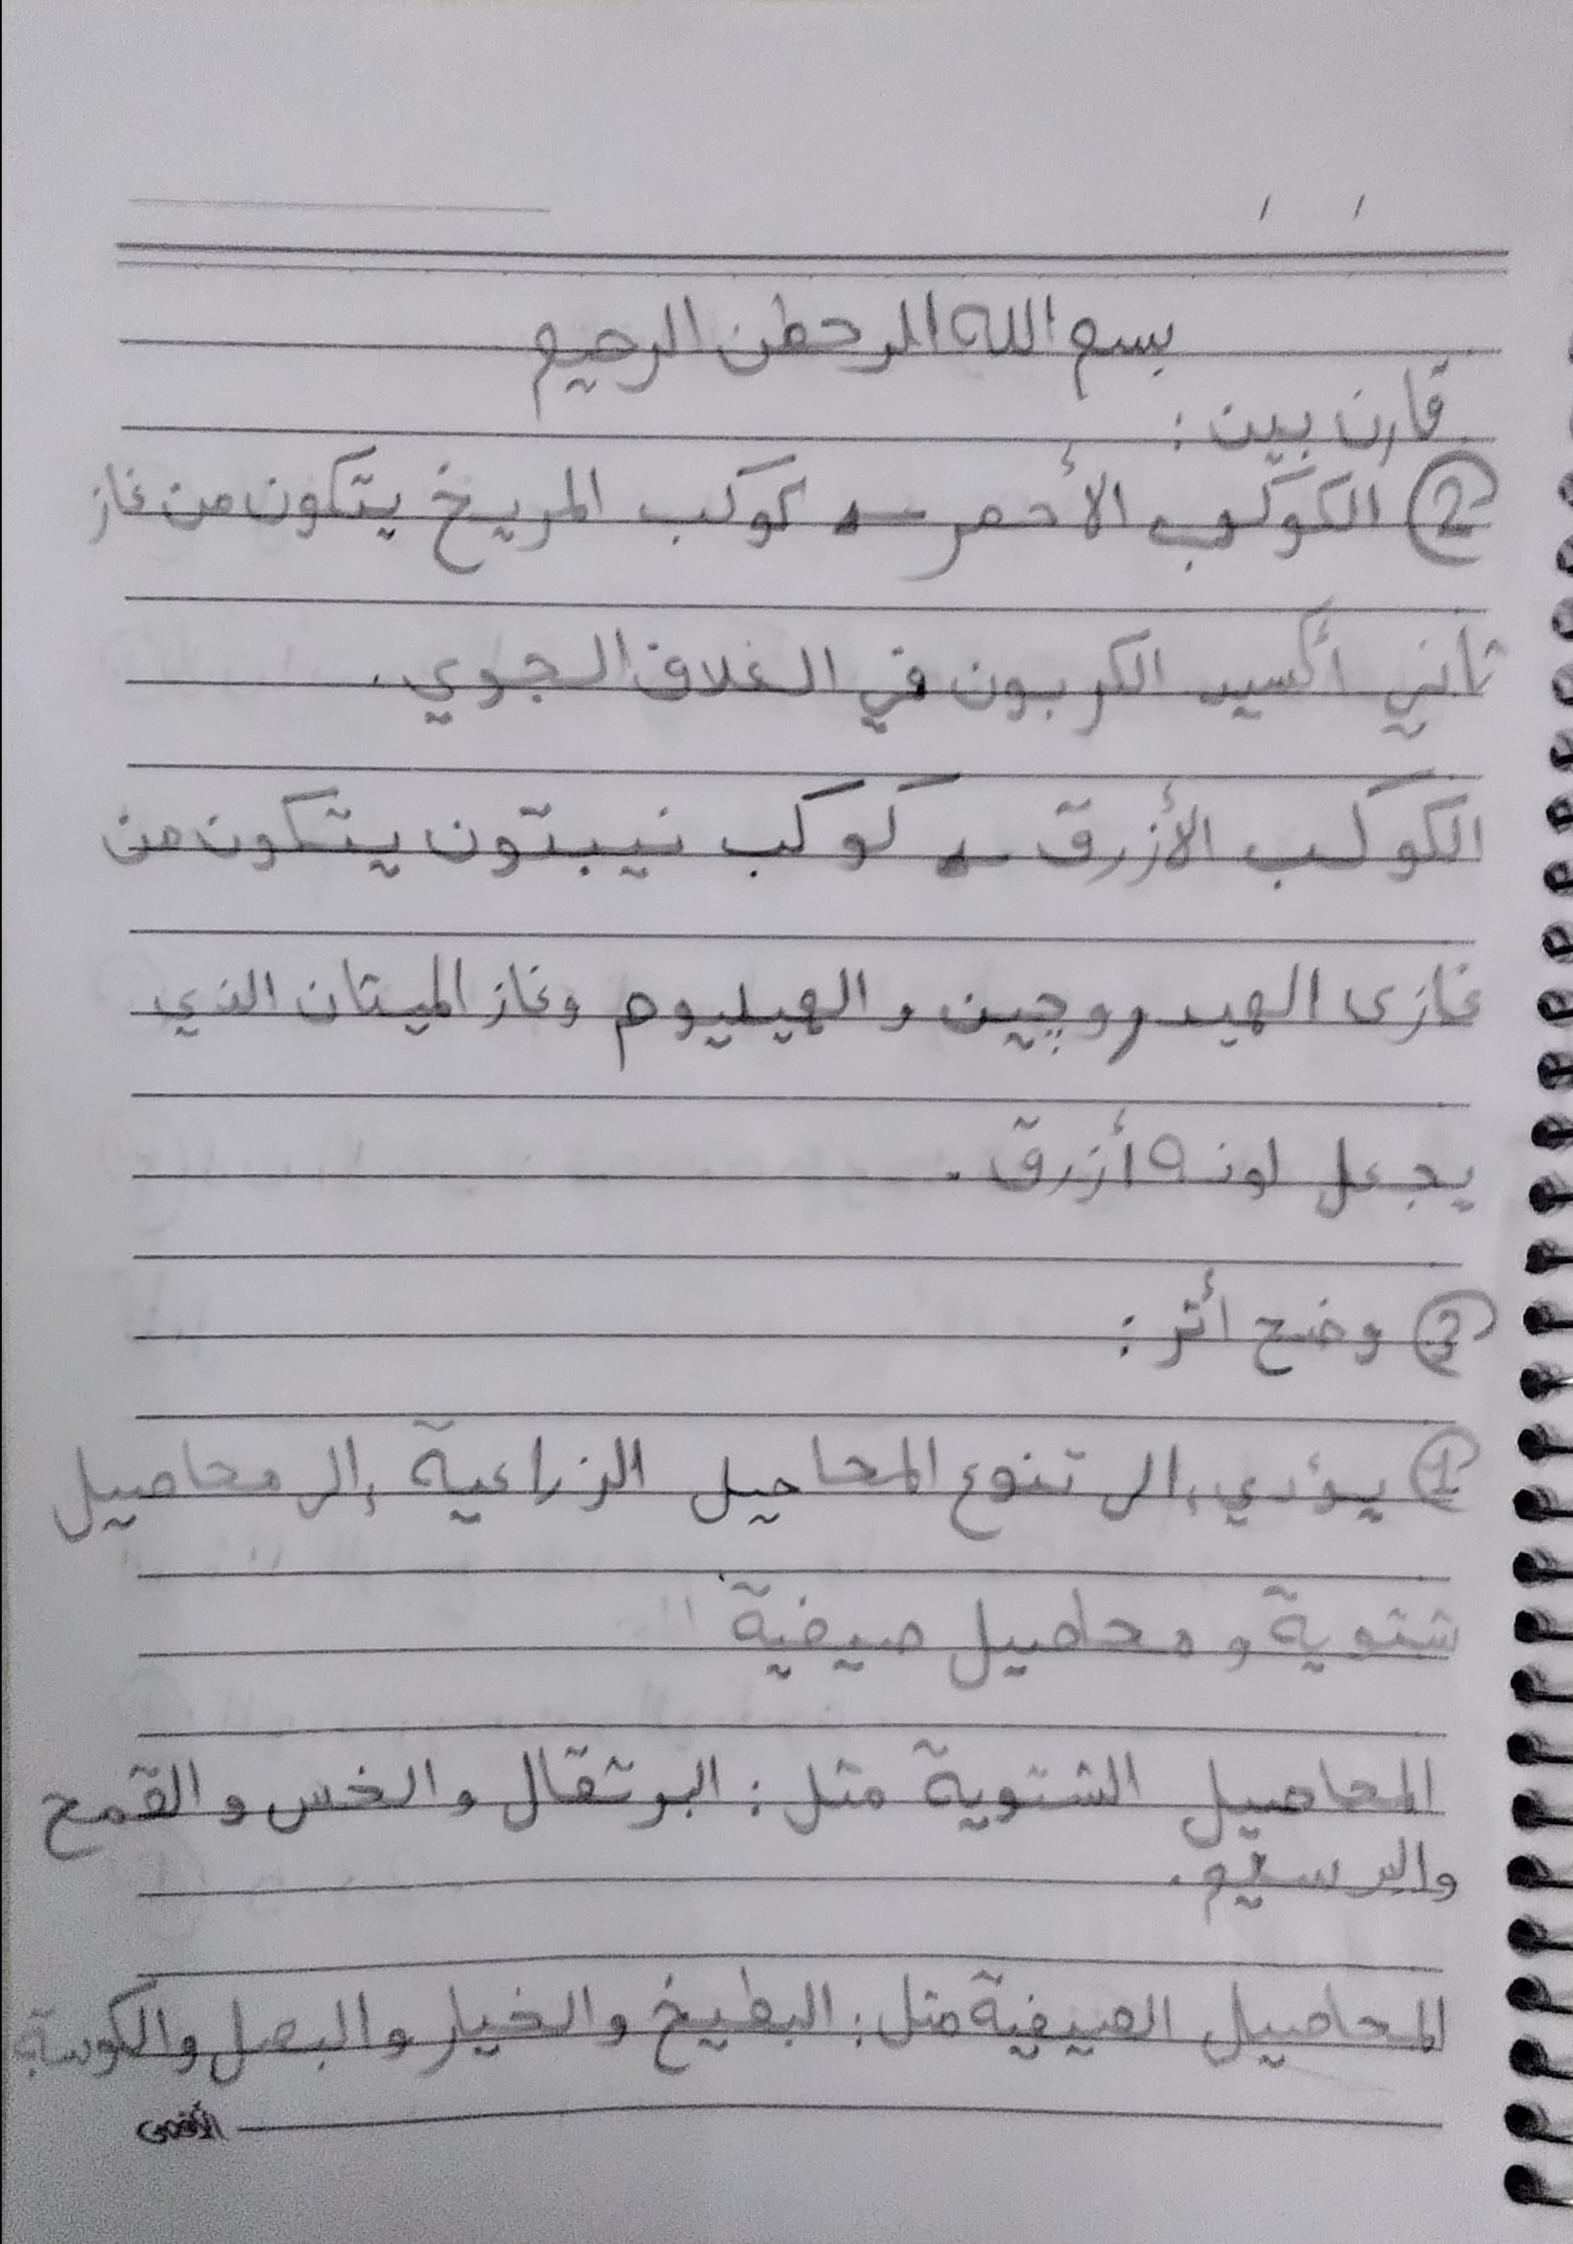 بسم الله الرحمن الرحيم
قارن بين :
② الكوكب الأحمر ← كوكب المريخ يتكون من غاز
ثاني أكسيد الكربون في الغلاف الجوي .
الكوكب الأزرق ← كوكب نيبتون يتكون من
غازى الهيدروجين و الهيليوم وغاز الميثان الذي
يجعل لونه أزرق .
③ وضح أثر :
① يؤدي إلى تنوع المحاصيل الزراعية إلى محاصيل
شتوية و محاصيل صيفية
المحاصيل الشتوية مثل : البرتقال والخس والقمح
والبرسيم .
المحاصيل الصيفية مثل : البطيخ والخيار والبصل والكوسة
الأقصى